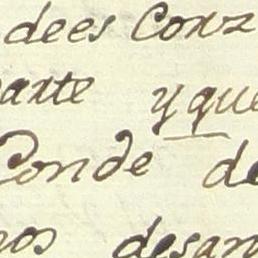 dees Corz
arte yque
Conde de
nos desan